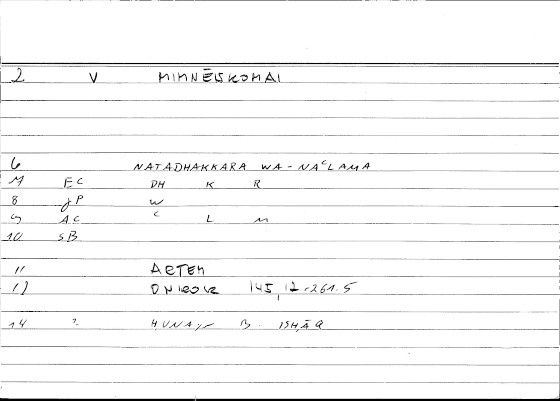 2 V MIMNĒSKOMAI
6 NATADHAKKARA WA-NAʿLAMA
M EC DH K R
8 JP W
9 AC ʿ L M
10 SB
11 ARTEM
12 ONIROCR 145,17-261.5
14 ? ḤUNAYN B. ISḤĀQ